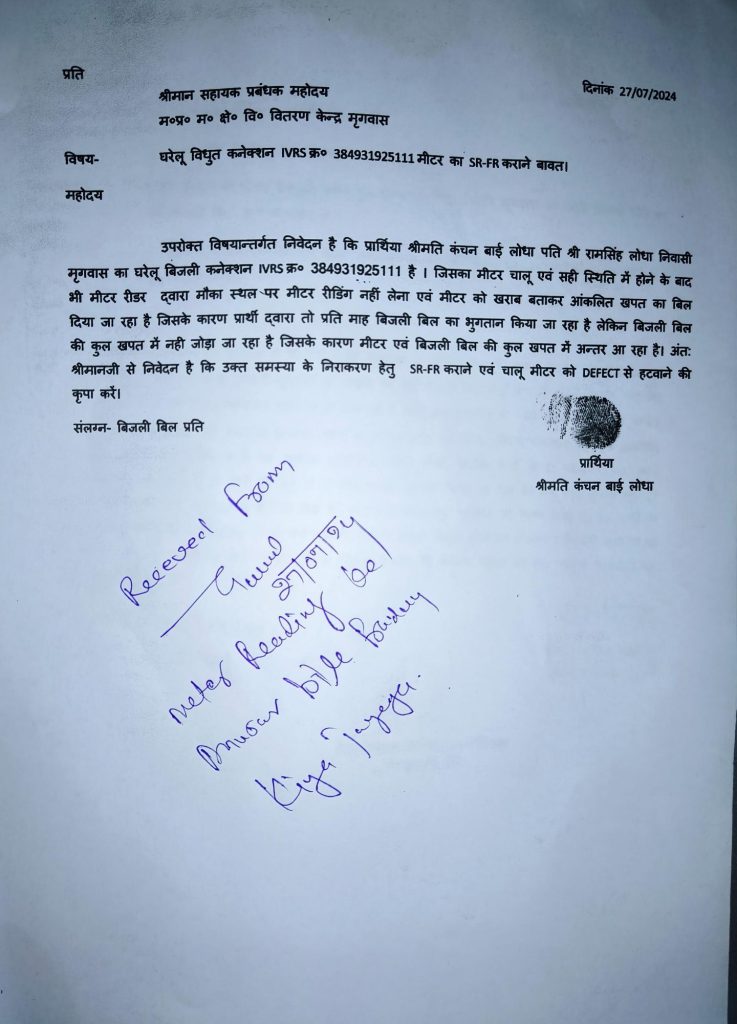 प्रति
श्रीमान सहायक प्रबंधक महोदय
दिनांक 27/07/2024
म०प्र० म० क्षे० वि० वितरण केन्द्र मृगवास
विषय- घरेलू विधुत कनेक्शन IVRS क्र० 384931925111 मीटर का SR-FR कराने बावत।
महोदय
उपरोक्त विषयान्तर्गत निवेदन है कि प्रार्थिया श्रीमति कंचन बाई लोधा पति श्री रामसिंह लोधा निवासी
मृगवास का घरेलू बिजली कनेक्शन IVRS क्र० 384931925111 है । जिसका मीटर चालू एवं सही स्थिति में होने के बाद
भी मीटर रीडर द्वारा मौका स्थल पर मीटर रीडिंग नहीं लेना एवं मीटर को खराब बताकर आंकलित खपत का बिल
दिया जा रहा है जिसके कारण प्रार्थी द्वारा तो प्रति माह बिजली बिल का भुगतान किया जा रहा है लेकिन बिजली बिल
की कुल खपत में नही जोड़ा जा रहा है जिसके कारण मीटर एवं बिजली बिल की कुल खपत में अन्तर आ रहा है। अंतः
श्रीमानजी से निवेदन है कि उक्त समस्या के निराकरण हेतु SR-FR कराने एवं चालू मीटर को DEFECT से हटवाने की
कृपा करें।
संलग्न- बिजली बिल प्रति
प्रार्थिया
श्रीमति कंचन बाई लोधा
Received From
27/07/24
meter Reading ke
Anusar
Kiya Jayega.